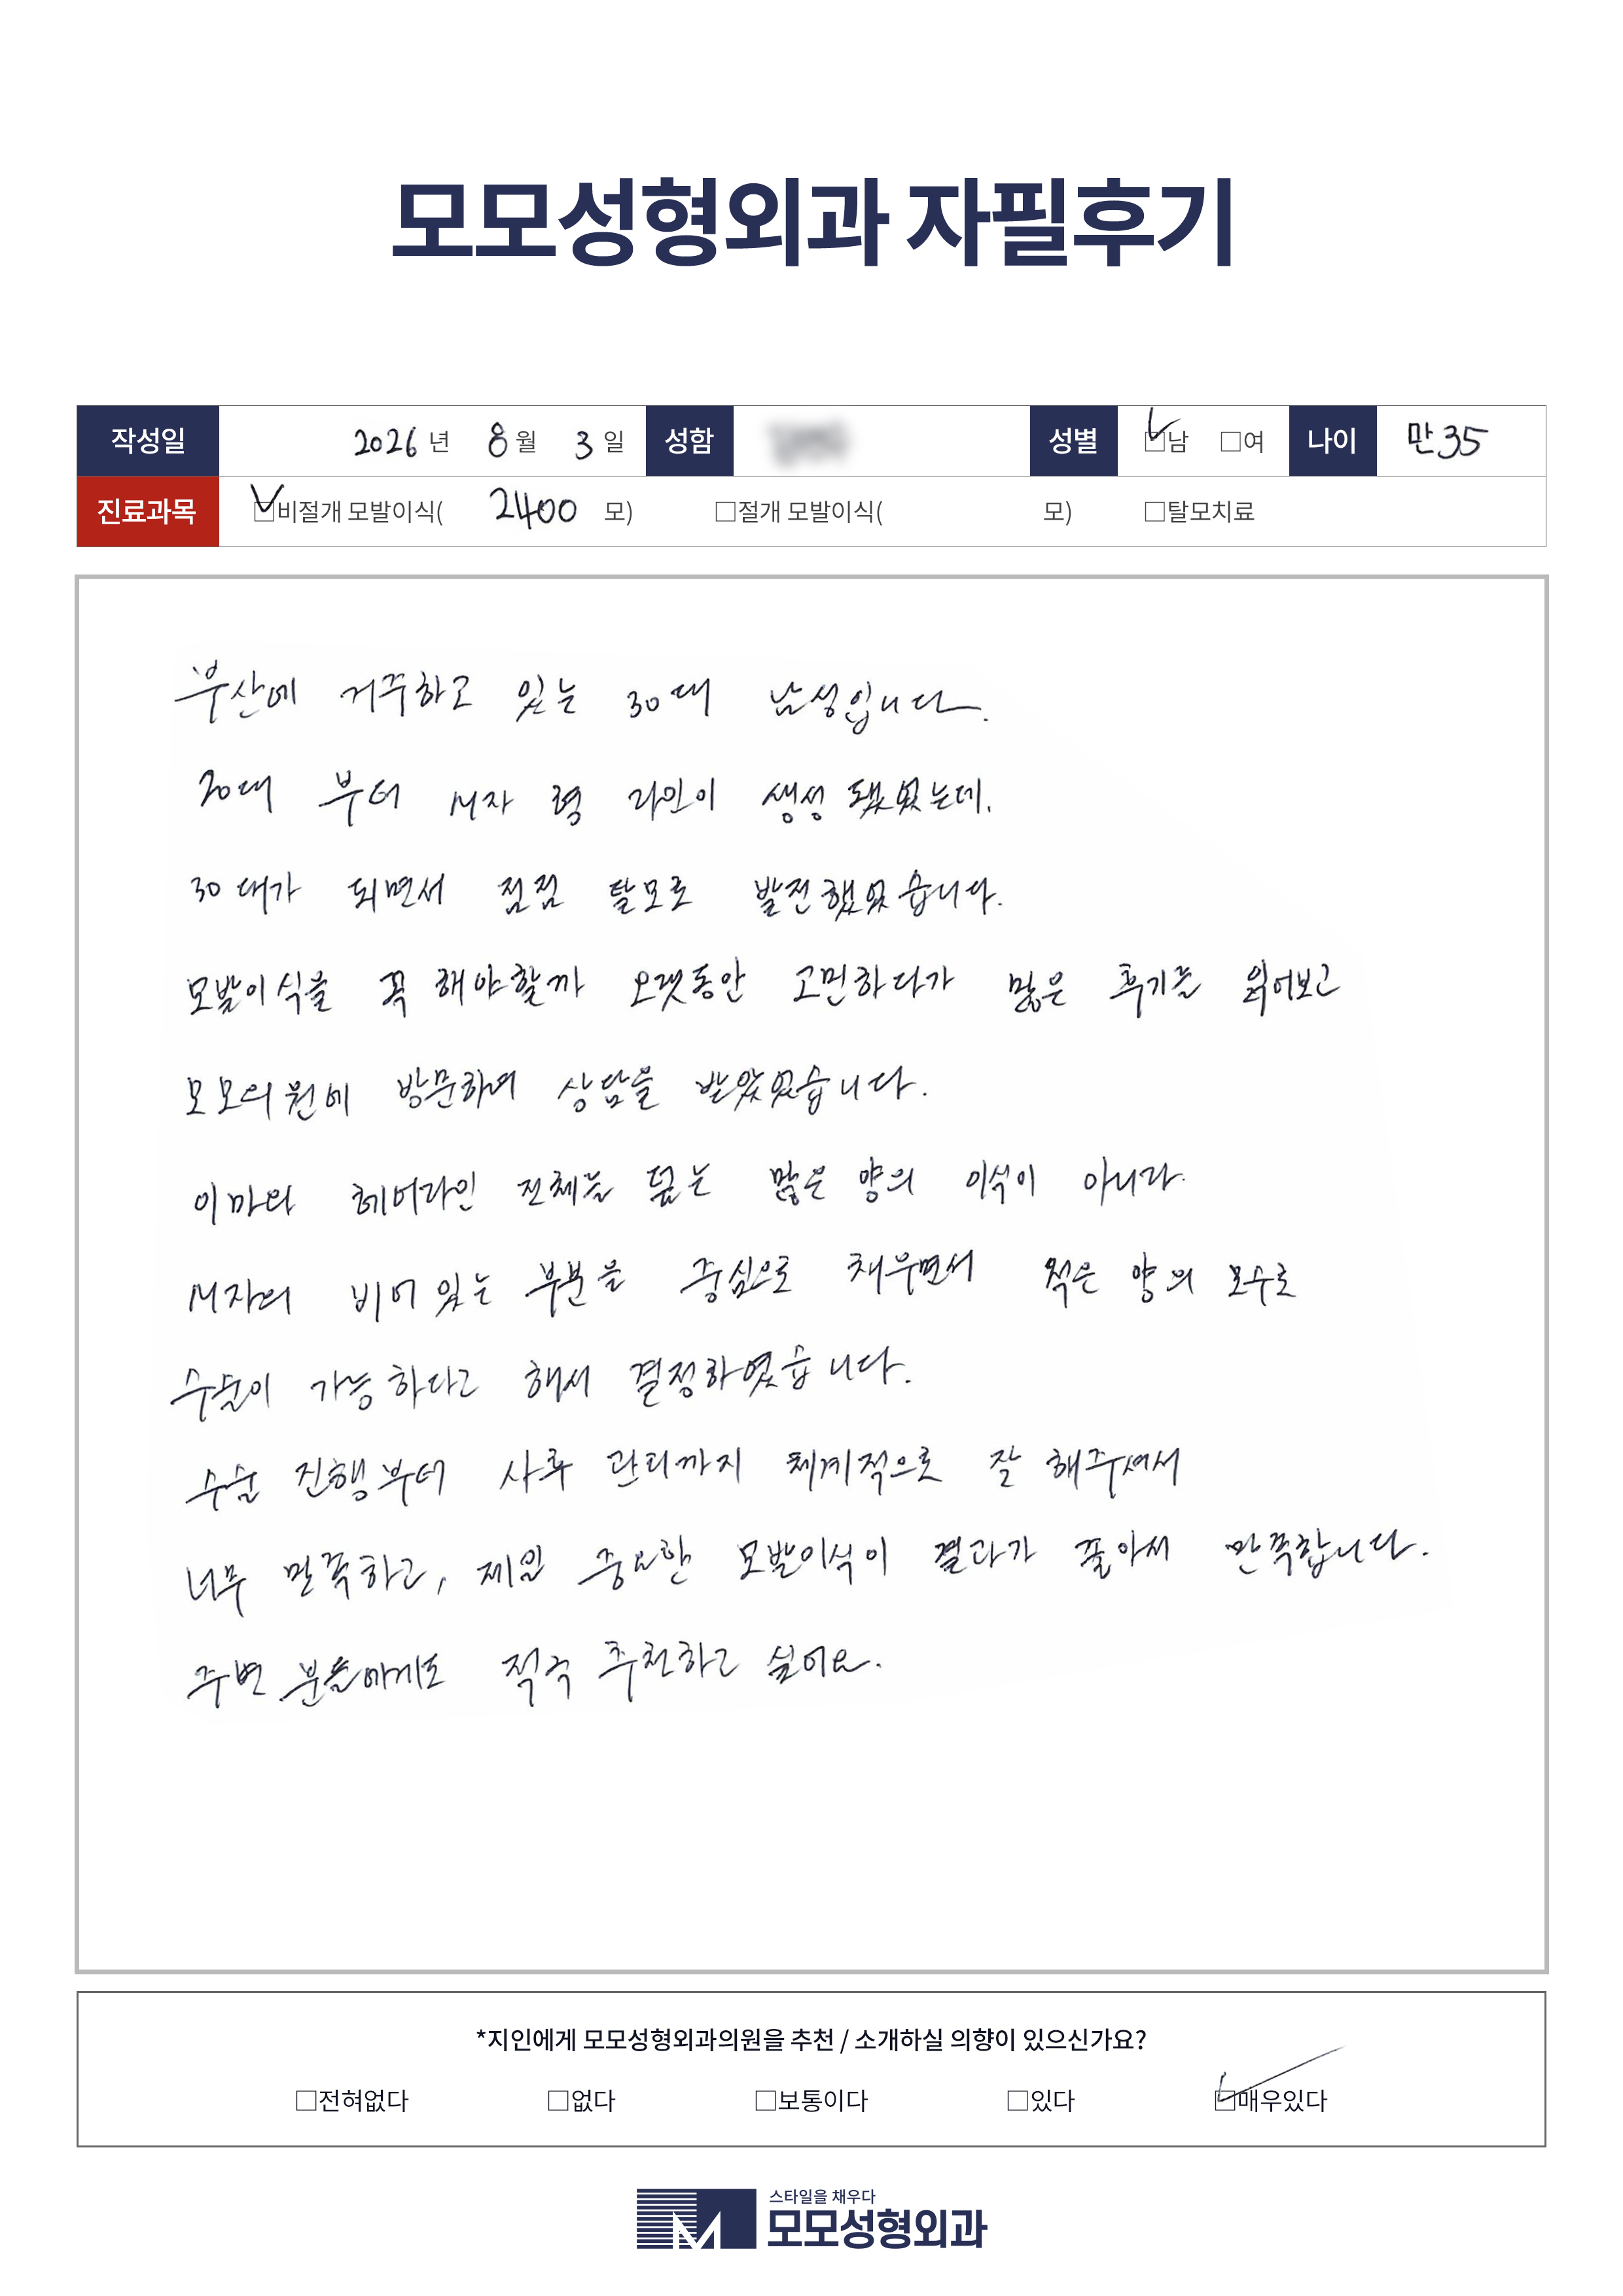 모모성형외과 자필후기
작성일 2026 년 8 월 3 일 성함 성별 □남 □여 나이 만 35
진료과목 □비절개 모발이식( 2400 모) □절개 모발이식( 모) □탈모치료
부산에 거주하고 있는 30대 남성입니다.
20대 부터 M자 형 라인이 생성 됐었는데,
30대가 되면서 점점 탈모로 발전했었습니다.
모발이식을 꼭 해야할까 오랫동안 고민하다가 많은 후기를 읽어보고
모모의원에 방문하여 상담을 받았었습니다.
이마와 헤어라인 전체를 덮는 많은 양의 이식이 아니라
M자의 비어있는 부분을 중심으로 채우면서 적은 양의 모수로
수술이 가능하다고 해서 결정하였습니다.
수술 진행부터 사후 관리까지 체계적으로 잘 해주셔서
너무 만족하고, 제일 중요한 모발이식이 결과가 좋아서 만족합니다.
주변 분들에게도 적극 추천하고 싶어요.
*지인에게 모모성형외과의원을 추천 / 소개하실 의향이 있으신가요?
□전혀없다 □없다 □보통이다 □있다 □매우있다
스타일을 채우다
모모성형외과